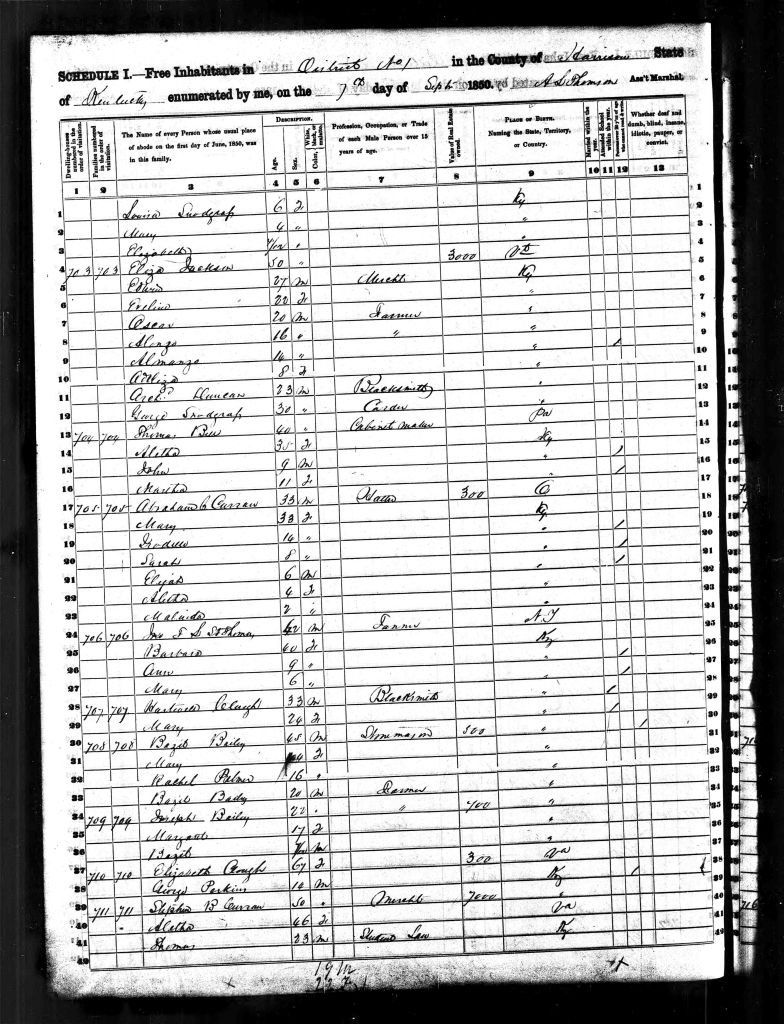 SCHEDULE I.—Free Inhabitants in District No 1 in the County of Harrison State
of Kentucky enumerated by me, on the 7th day of Sept 1850. A S Thomson Ass't Marshal.
Dwelling-houses numbered in the order of visitation.
Families numbered in the order of visitation.
The Name of every Person whose usual place of abode on the first day of June, 1850, was in this family.
DESCRIPTION.
Age.
Sex.
White, black, or mulatto.
Color,
Profession, Occupation, or Trade of each Male Person over 15 years of age.
Value of Real Estate owned.
PLACE OF BIRTH.
Naming the State, Territory, or Country.
Married within the year.
Attended School within the year.
Whether deaf and dumb, blind, insane, idiotic, pauper, or convict.
1 2 3 4 5 6 7 8 9 10 11 12 13
1 Louisa Snodgrass 6 F Ky
2 Mary 4 "
3 Elizabeth "
4 703 703 Eliza Jackson 50 " 3000
5 Edwin 27 M Mercht Ky
6 Eveline 22 F "
7 Oscar 20 M Farmer "
8 Alonzo 16 " " "
9 Almanza 14 " "
10 8 F "
11 Archd Duncan 23 M Blacksmith "
12 George Snodgrass 30 " Carder Pa
13 704 704 Thomas Bell 40 " Cabinet maker Ky
14 Aletha 35 F "
15 John 9 M "
16 Martha 11 F "
17 705 705 Abraham C Curran 33 M Hatter 300 O
18 Mary 33 F Ky
19 14 " "
20 Sarah 8 " "
21 Elijah 6 M "
22 Aletha 4 F "
23 Malinda 2 " "
24 706 706 Jno T S St Thomas 42 M Tanner N.Y
25 Barbara 40 F Ky
26 Ann 9 " "
27 Mary 6 " "
28 707 707 Clough 33 M Blacksmith "
29 Mary 24 F "
30 708 708 Bazil Bailey 45 M Stone mason 500 "
31 Mary 44 F "
32 Rachel Palmer 16 " "
33 Bazil 20 M Farmer "
34 709 709 Joseph Bailey 22 " " 700 "
35 Margaret 17 F "
36 Bazil M "
37 710 710 Elizabeth Clough 67 F 300 Va
38 George Perkins 10 M Ky
39 711 711 Stephen B Curran 50 " Mercht 7000 "
40 Aletha 46 F Va
41 Thomas 23 M Student Law Ky
42
19 M
22 F